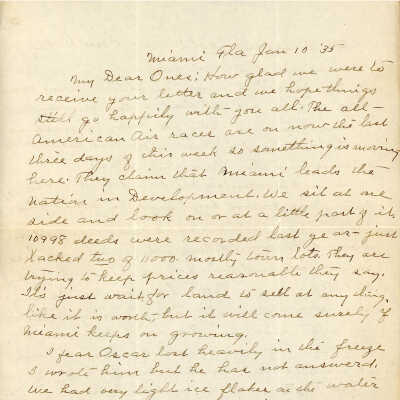 Miami Fla Jan 10 '35
My Dear Ones: How glad we were to
receive your letter and we hope things
still go happily with you all. The all-
American Air races are on now the last
three days of this week so something is moving
here. They claim that Miami leads the
nation in Development. We sit at one
side and look on or at a little part of it.
10998 deeds were recorded last year - just
lacked two of 11000 mostly town lots. They are
trying to keep prices reasonable they say.
It's just wait for land to sell at any thing
like it is worth but it will come surely if
Miami keeps on growing.
I fear Oscar lost heavily in the freeze
I wrote him but he has not answerd.
We had very light ice flakes on the water